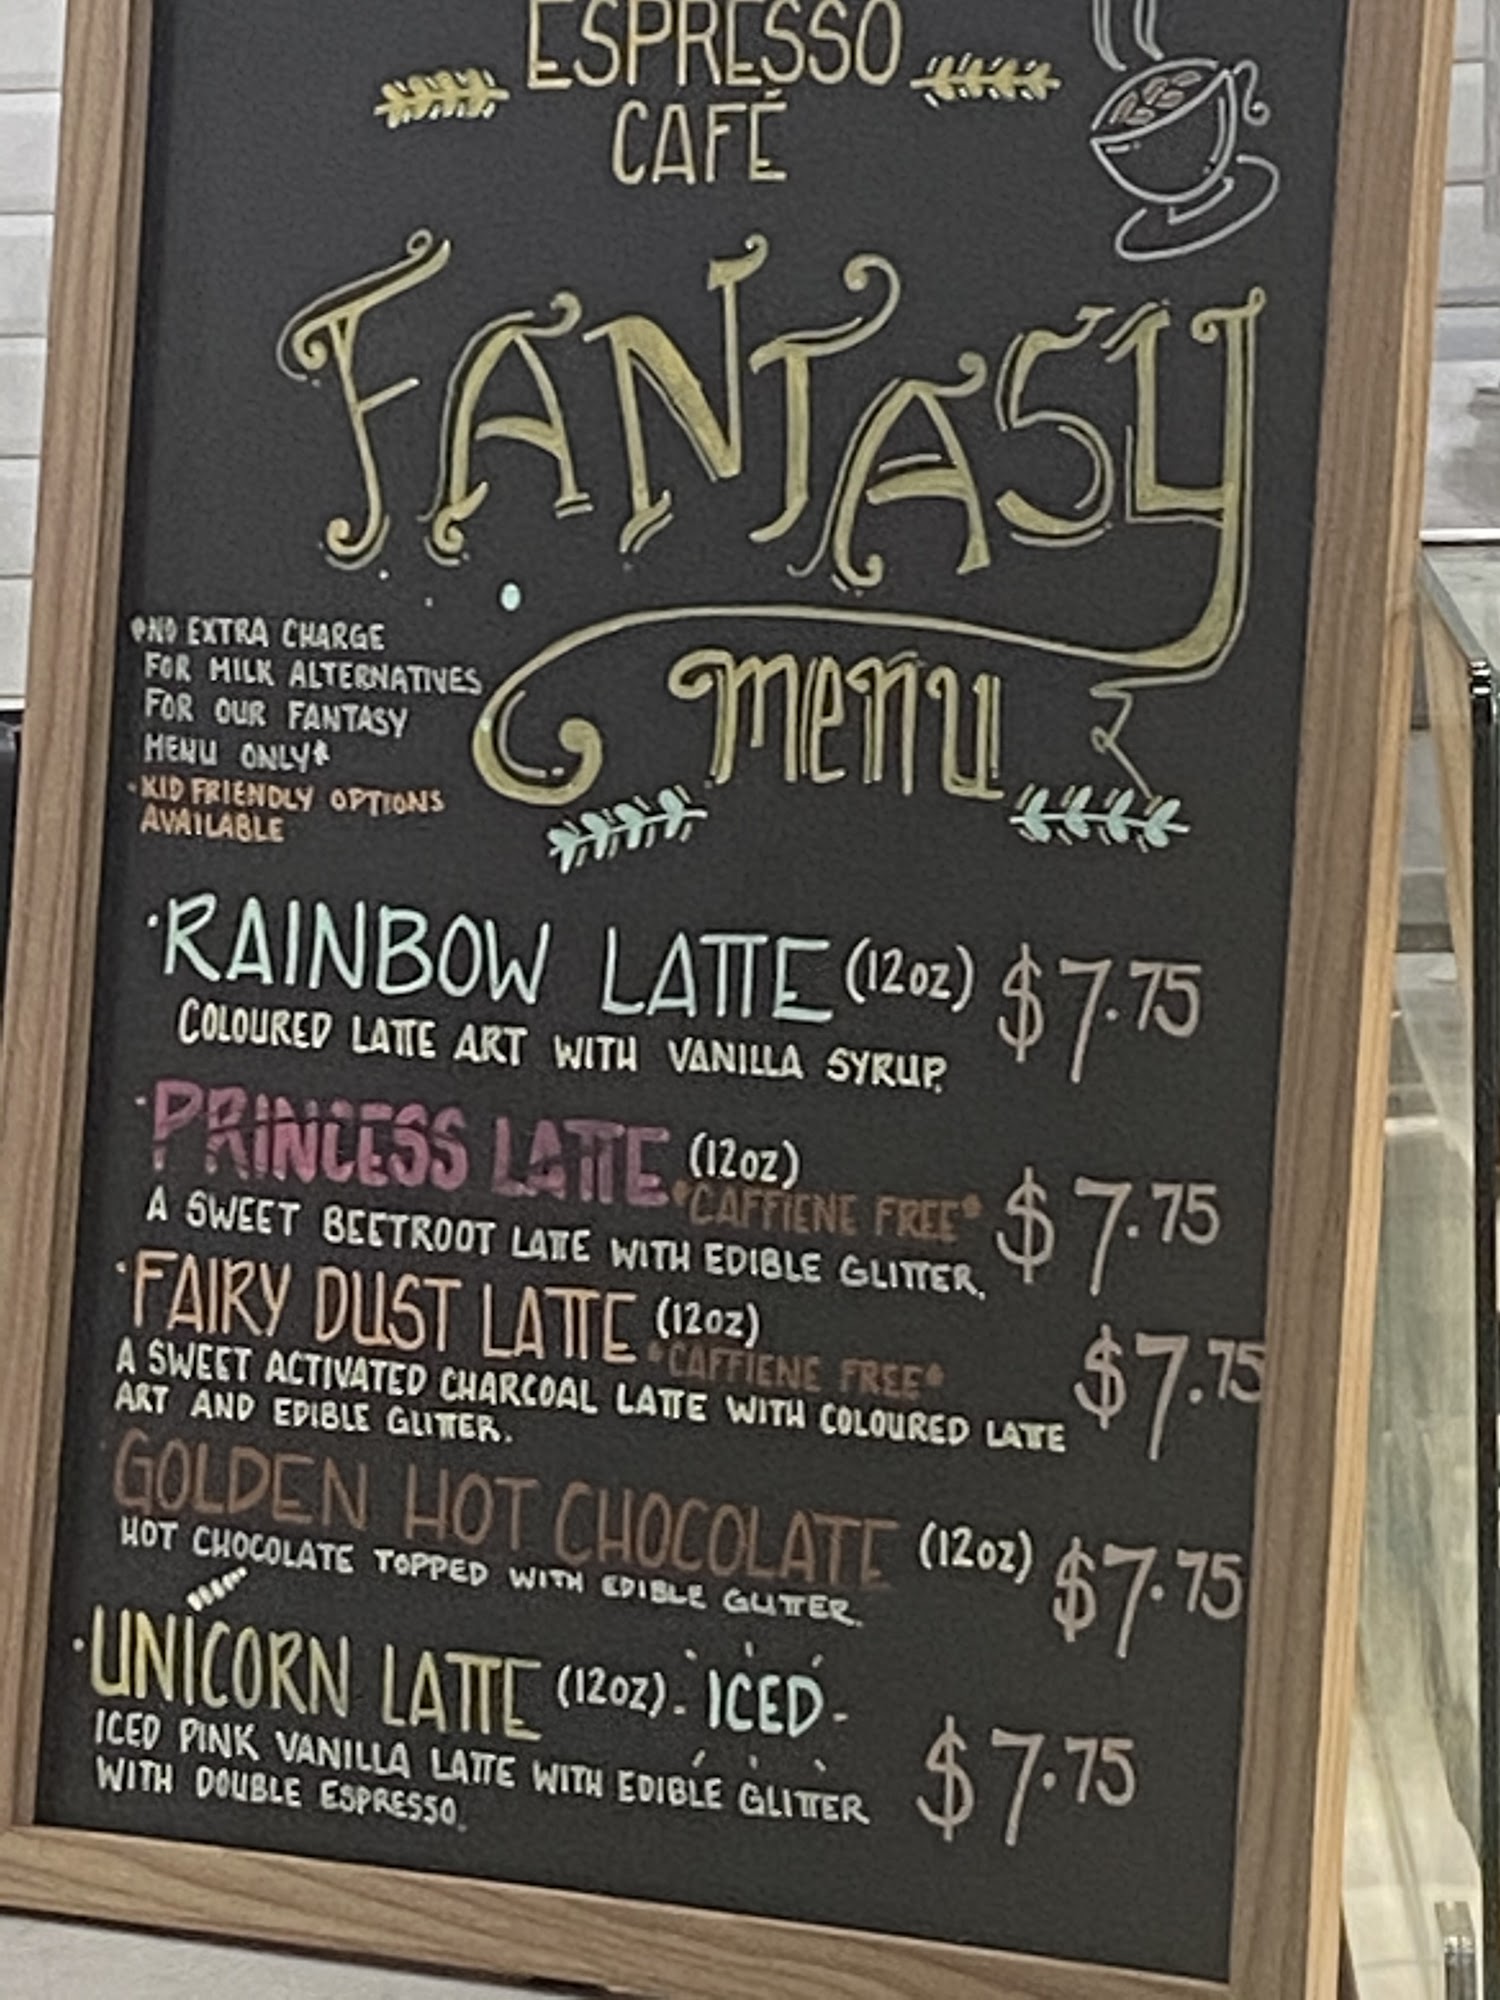 ESPRESSO
CAFÉ
FANTASY
menu
*NO EXTRA CHARGE
FOR MILK ALTERNATIVES
FOR OUR FANTASY
MENU ONLY*
·KID FRIENDLY OPTIONS
AVAILABLE
·RAINBOW LATTE (12oz) $7.75
COLOURED LATTE ART WITH VANILLA SYRUP.
·PRINCESS LATTE (12oz)
*CAFFIENE FREE* $7.75
A SWEET BEETROOT LATTE WITH EDIBLE GLITTER.
·FAIRY DUST LATTE (12oz)
*CAFFIENE FREE* $7.75
A SWEET ACTIVATED CHARCOAL LATTE WITH COLOURED LATTE
ART AND EDIBLE GLITTER.
·GOLDEN HOT CHOCOLATE (12oz) $7.75
HOT CHOCOLATE TOPPED WITH EDIBLE GLITTER.
·UNICORN LATTE (12oz) - ICED -
ICED PINK VANILLA LATTE WITH EDIBLE GLITTER $7.75
WITH DOUBLE ESPRESSO.